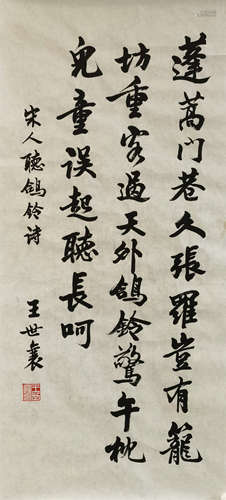 蓬蒿門巷久張羅豈有籠
坊重客過天外鴿鈴驚午枕
兒童误起聽長呵
宋人聽鴿鈴诗
王世襄